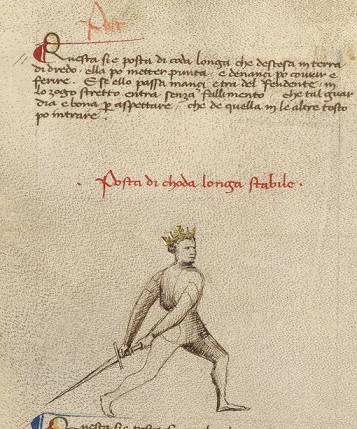 Questa si e posta di coda longa che destesa in terra
di dredo. ella po metter punta, e denanci po covrir e
ferire. E se ello passa inanci e tra del fendente, in
lo zogo stretto entra senza fallimento che tal guar
dia e bona per aspettare, che de quella in le altre tosto
po intrare.
Posta di choda longa stabile.